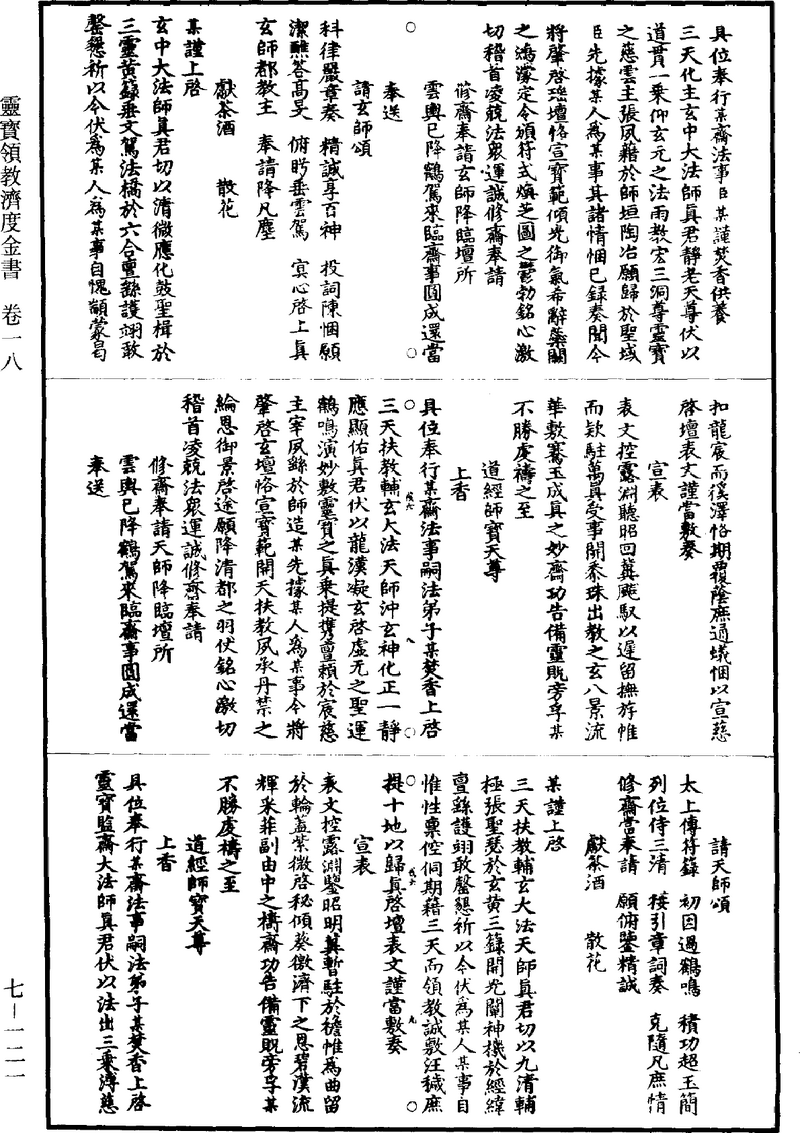 具位奉行某齋法事臣某謹焚香供養
三天化主玄中大法師眞君靜老天尊伏以
道貫一乘仰玄元之法雨教宏三洞尊靈寶
之慈雲主張夙藉於師垣陶冶願歸於聖域
臣先據某人爲某事其諸情悃已録奏聞今
將肇啓瑶壇恪宣寶範傾光御氣希辭蘂闕
之鴻濛定令頒符式煥芝圖之鬱勃銘心激
切稽首凌兢法衆運誠修齋奉請
修齋奉請玄師降臨壇所
雲輿已降鶴駕來臨齋事圓成還當
奉送
請玄師頌
科律嚴章奏 精誠享百神 投詞陳悃願
潔醮答高旻 俯盻垂雲駕 冥心啓上眞
玄師都教主 奉請降凡塵
獻茶酒 散花
某謹上啓
玄中大法師眞君切以清微應化鼓聖楫於
三靈黄籙垂文駕法橋於六合亶繇護翊敢
罄懇祈以今伏爲某人爲某事自愧顓蒙曷
扣龍宸而徯澤恪期覆蔭庶通蟻悃以宣慈
啓壇表文謹當敷奏
宣表
表文控露淵聽昭回冀飈馭以遲留撫斿帷
而欵駐萬眞受事開黍珠出教之玄八景流
華敷騫玉成眞之妙齋功告備靈貺旁孚某
不勝虔禱之至
道經師寶天尊
上香
具位奉行某齋法事嗣法弟子某焚香上啓
三天扶教輔玄大法天師沖玄神化正一靜
應顯佑眞君伏以龍漢凝玄啓虚无之聖運
鶴鳴演妙敷靈寶之眞乘提携亶賴於宸慈
主宰夙繇於師造某先據某人爲某事今將
肇啓玄壇恪宣寶範開天扶教夙承丹禁之
綸恩御景啓途願降清都之羽伏銘心激切
稽首凌兢法衆運誠修齋奉請
修齋奉請天師降臨壇所
雲輿已降鶴駕來臨齋事圓成還當
奉送
請天師頌
太上傳符籙 初因過鶴鳴 積功超玉簡
列位侍三清 接引章詞奏 克隨凡庶情
修齋當奉請 願俯鑒精誠
獻茶酒 散花
某謹上啓
三天扶教輔玄大法天師眞君切以九清輔
極張聖瑟於玄黄三籙開光闡神機於經緯
亶繇護翊敢罄懇祈以今伏爲某人某事自
惟性稟倥侗期藉三天而領教誠敷汪穢庶
提十地以歸眞啓壇表文謹當敷奏
宣表
表文控露淵鑒昭明冀暫駐於襜帷爲曲留
於輪蓋紫微啓秘傾葵徼濟下之恩碧漢流
輝采菲副由中之禱齋功告備靈貺旁孚某
不勝虔禱之至
道經師寶天尊
上香
具位奉行某齋法事嗣法弟子某焚香上啓
靈寶監齋大法師眞君伏以法出三乘溥慈
靈寶領教濟度金書 卷一八
七—一二一